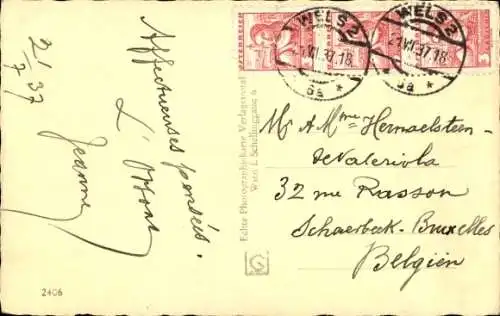 21/7 37
Affectueuses pensées.
Jeanne
ÖSTERREICH
WELS 2
21.VII.37.18
6a
WELS 2
21.VII.37.18
6a
Echte Photographiekarte Verlagsrontal
Wien I, Schellinggasse 6
Mr & Mme Hermaelsteen-
deValeriola
32 rue Rasson
Schaerbeek-Bruxelles
Belgien
2406